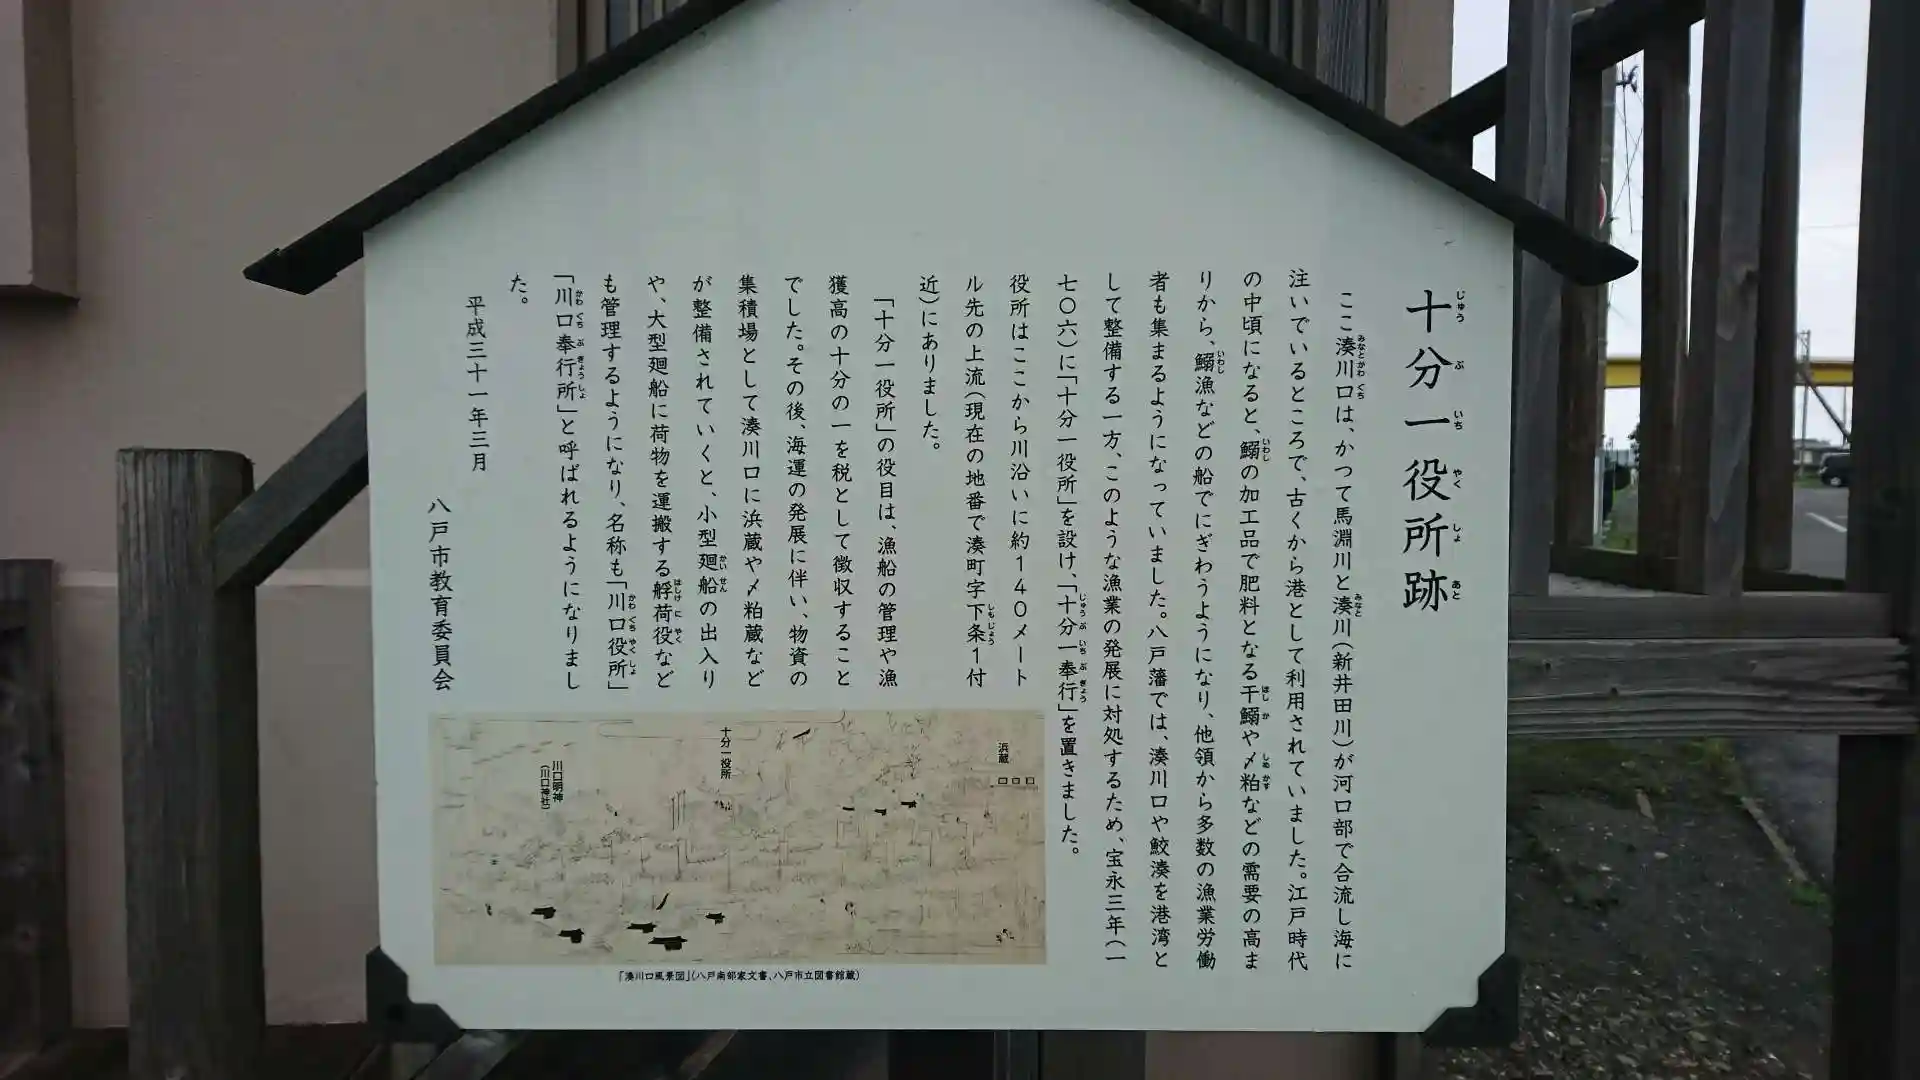 十分一役所跡
じゅう ぶ いち やく しょ あと
ここ湊川口は、かつて馬淵川と湊川（新井田川）が河口部で合流し海に
みなとかわ ぐち
みなと
注いでいるところで、古くから港として利用されていました。江戸時代
の中頃になると、鰯の加工品で肥料となる干鰯や〆粕などの需要の高ま
いわし
ほし か
しめ かす
りから、鰯漁などの船でにぎわうようになり、他領から多数の漁業労働
いわし
者も集まるようになっていました。八戸藩では、湊川口や鮫湊を港湾と
して整備する一方、このような漁業の発展に対処するため、宝永三年（一
七〇六）に「十分一役所」を設け、「十分一奉行」を置きました。
じゅう ぶ いち ぶ ぎょう
役所はここから川沿いに約140メート
ル先の上流（現在の地番で湊町字下条1付
しもじょう
近）にありました。
「十分一役所」の役目は、漁船の管理や漁
獲高の十分の一を税として徴収すること
でした。その後、海運の発展に伴い、物資の
集積場として湊川口に浜蔵や〆粕蔵など
が整備されていくと、小型廻船の出入り
かい せん
や、大型廻船に荷物を運搬する艀荷役など
はしけ に やく
も管理するようになり、名称も「川口役所」
かわ ぐち やく しょ
「川口奉行所」と呼ばれるようになりまし
かわ ぐち ぶ ぎょうしょ
た。
平成三十一年三月
八戸市教育委員会
浜蔵
十分一役所
川口明神
（川口神社）
「湊川口風景図」（八戸南部家文書、八戸市立図書館蔵）